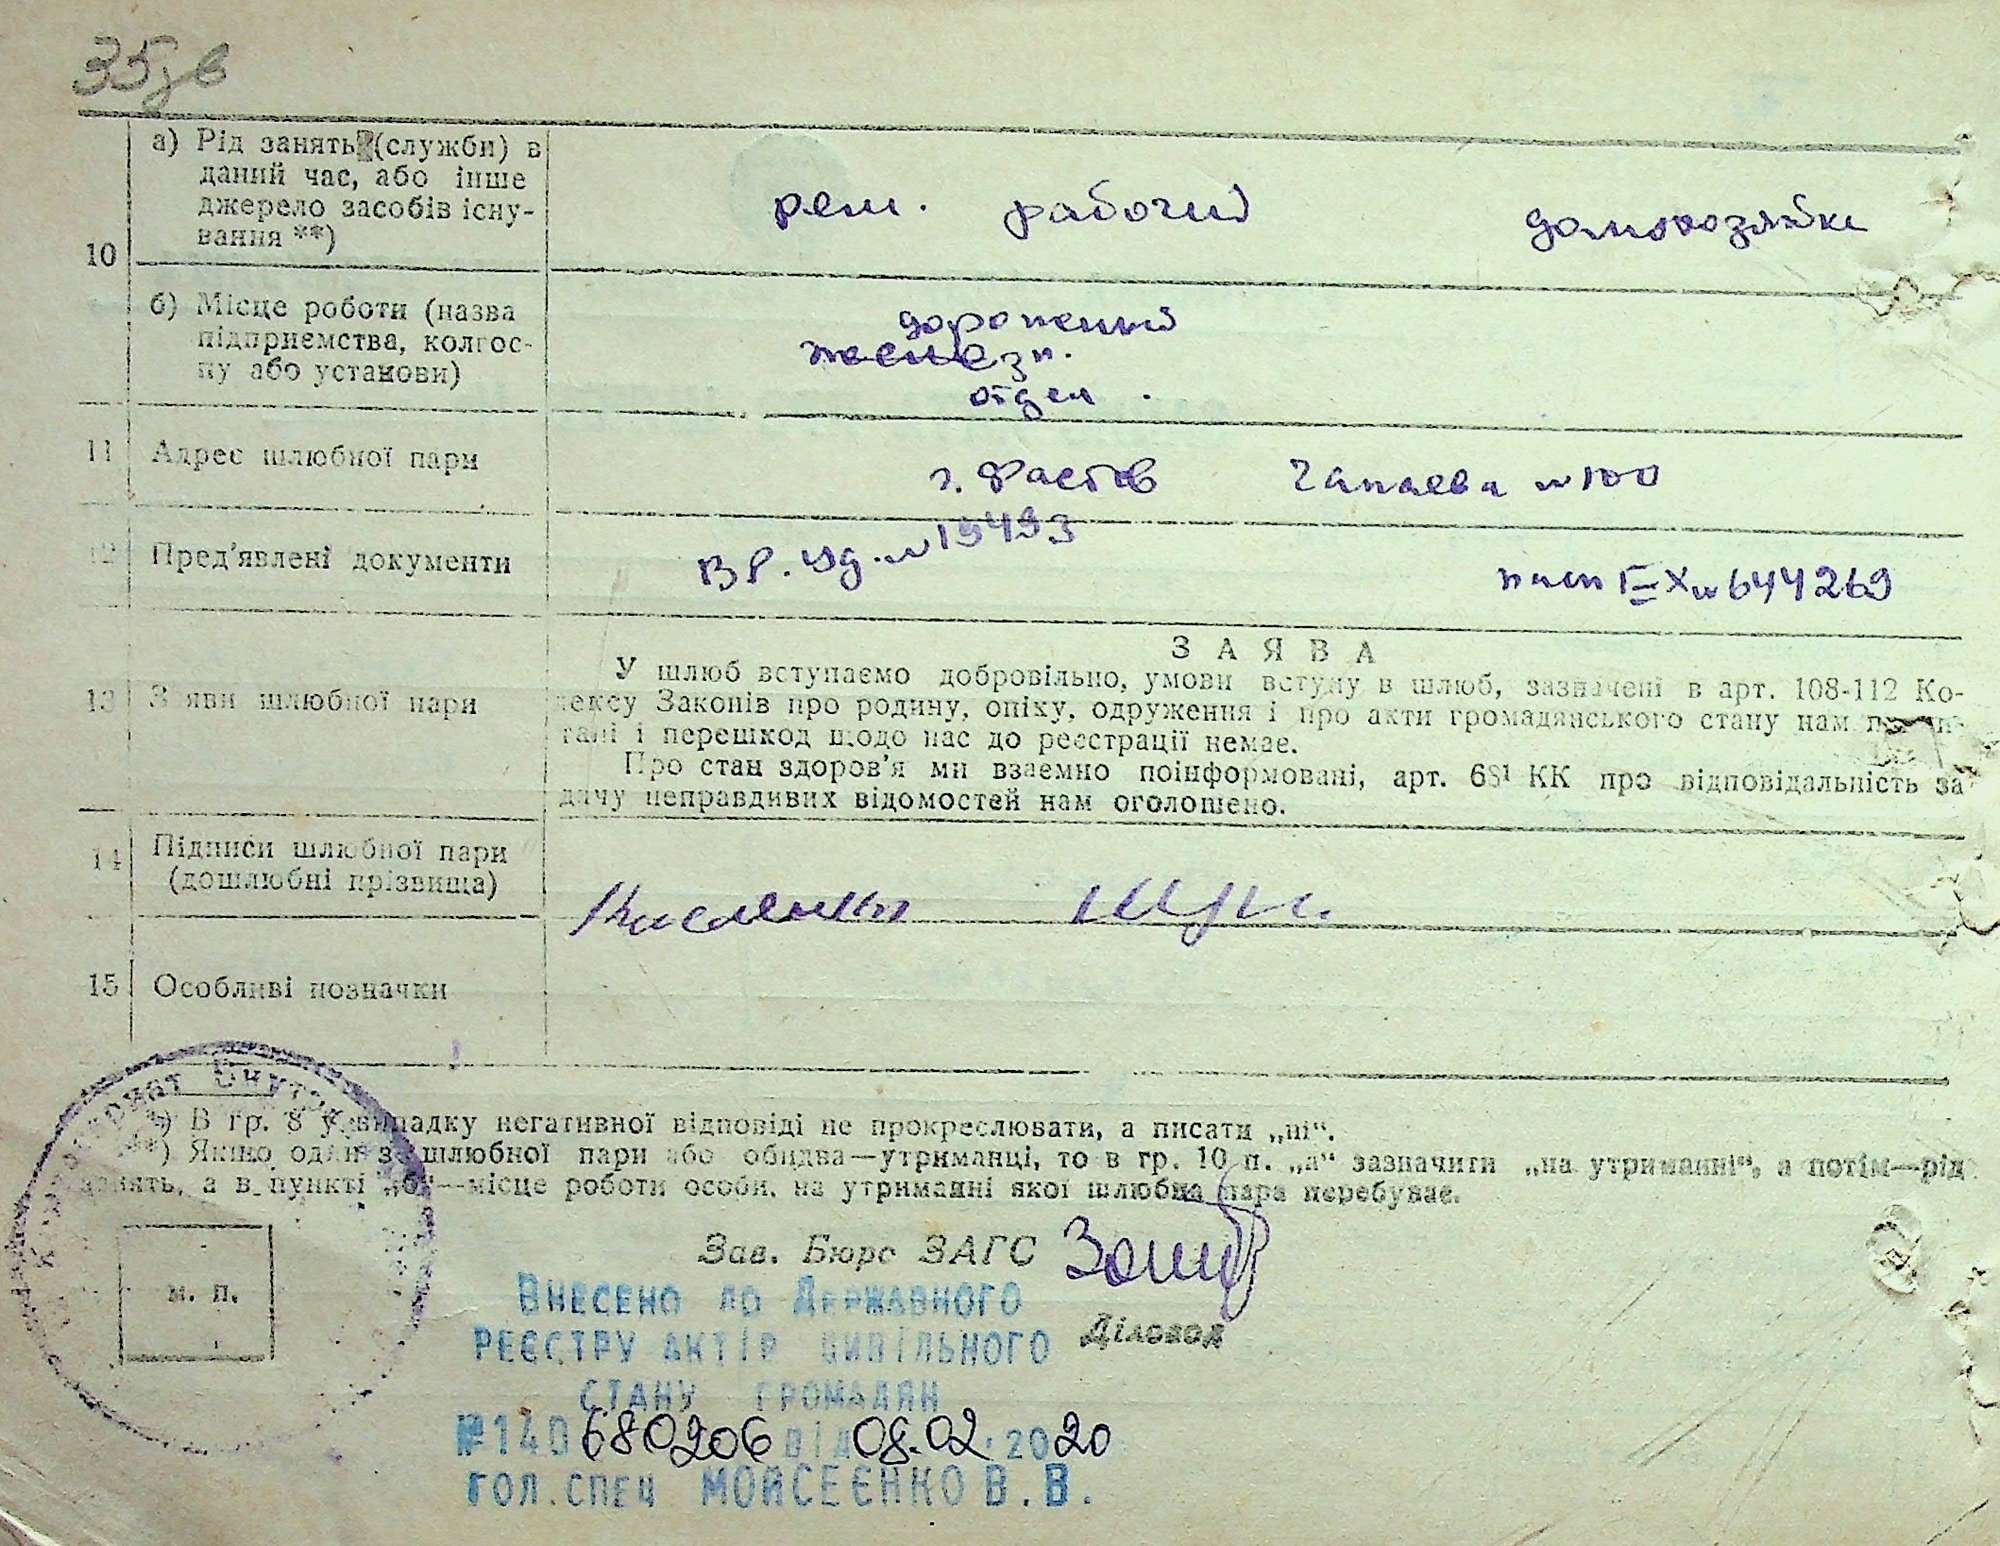 35зв
10
а) Рід занять (служби) в
даний час, або інше
джерело засобів існу-
вання **)
рем. рабочий
домохозяйка
б) Місце роботи (назва
підприємства, колгос-
пу або установи)
дорожений
железн.
отдел.
11 Адрес шлюбної пари
г. Фастов Чапаева №100
12 Пред'явлені документи
ВР. уд. №19493
№ 644269
13 Заяви шлюбної пари
ЗАЯВА
У шлюб вступаємо добровільно, умови вступу в шлюб, зазначені в арт. 108-112 Ко-
дексу Законів про родину, опіку, одруження і про акти громадянського стану нам
і перешкод щодо нас до реєстрації немає.
Про стан здоров'я ми взаємно поінформовані, арт. 68¹ КК про відповідальність за
дачу неправдивих відомостей нам оголошено.
14 Підписи шлюбної пари
(дошлюбні прізвища)
15 Особливі позначки
*) В гр. 8 у випадку негативної відповіді не прокреслювати, а писати „ні“.
**) Якщо один з шлюбної пари або обидва—утриманці, то в гр. 10 п. „а“ зазначити „на утриманні“, а потім—рід
занять, а в пункті „б“—місце роботи особи, на утриманні якої шлюбна пара перебуває.
м. п.
Зав. Бюро ЗАГС
Діловод
Внесено до Державного
реєстру актів цивільного
стану громадян
№140680206 від 08.02.2020
гол.спец Мойсеєнко В.В.